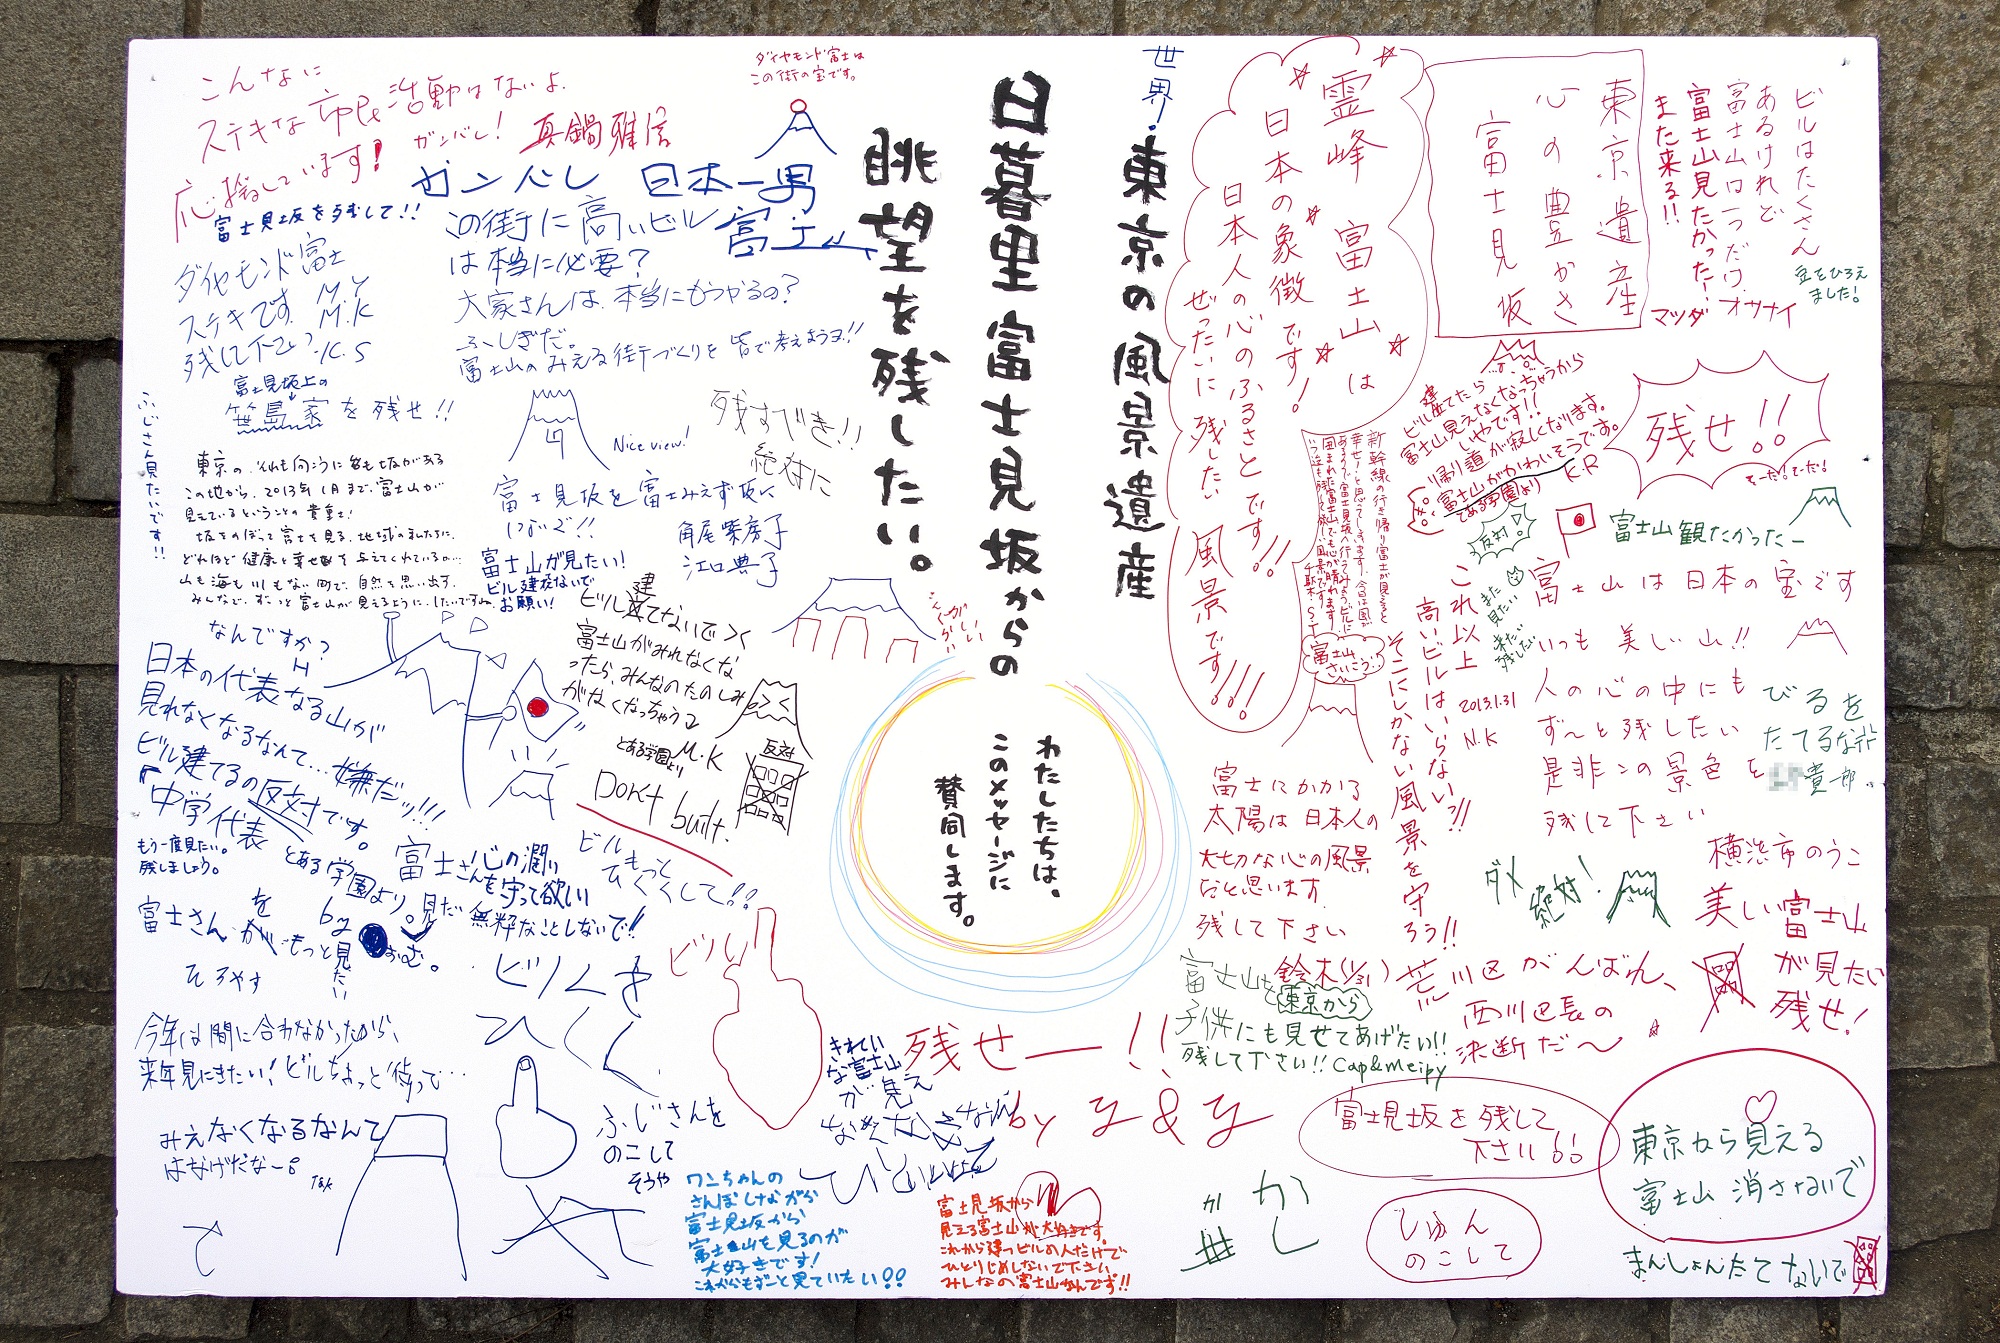 世界！
東京の風景遺産
日暮里富士見坂からの
眺望を残したい。
わたしたちは、
このメッセージに
賛同します。
こんなに
ステキな市民活動はないよ、
応援しています！
ガンバレ！
真鍋雅信
ダイヤモンド富士は
この街の宝です。
ガンバレ 日本一男
富士山
富士見坂を残して！！
ダイヤモンド富士
ステキです。
M.Y
M.K
K.S
この街に高いビル
は本当に必要？
大家さんは、本当にもうかるの？
ふしぎだ。
富士山のみえる街づくりを皆で考えようヨ！！
富士見坂上の
笹島家を残せ！！
ふじさん見たいです！！
Nice view!
残すべき！！
絶対に
東京の、それも向こうに
この地から、2013年1月まで、富士山が
見えているということの貴重さ！
坂をのぼって富士を見る、地域の
どれほど健康と幸せ
山も海も川もない町で、自然を思い出す。
みんなで、ずーっと富士山が見えるように、したいですね。
富士見坂を富士みえず坂に
しないで！！
角尾紫房子
江口典子
富士山が見たい！
ビル建てないで
お願い！
なんですか？
日本の代表なる山が
見れなくなるなんて…嫌だッ！！！
ビル建てるの反対です。
「中学代表
とある学園より。
ビル建てないで＞＜
富士山がみれなくな
ったら、みんなのたのしみ
がなくなっちゃう
とある学園より M.K
反対
Don't built.
もう一度見たい。
残しましょう。
富士さん
もっと
見たい
ひろやす
富士さん心の潤い
を守って欲しい
無粋なことしないで！！
ビル
もっと
ひくくして！！
ビルを
ひくく
ビル
今年は間に合わなかったから、
来年見にきたい！ビルちょっと待って…
みえなくなるなんて
ふじさんを
のこして
そうや
きれいな富士山
が見え
ワンちゃんの
さんぽしながら
富士見坂から
富士山を見るのが
大好きです！
これからもずーと見ていたい！！
富士見坂から
見える富士山が大好きです。
これから建つビルの人だけで
ひとりじめしないで下さい
みんなの富士山なんです！！
残せー！！
by Y & Y
霊峰 富士山は
日本の象徴です！
日本人の心のふるさとです！！
ぜったいに残したい
風景です！！！
東京遺産
心の豊かさ
富士見坂
ビルはたくさん
あるけれど
富士山は一つだけ。
富士山見たかった！
また来る！！
マツダ オサナイ
豆をひろえ
ました！
ビル建てたら
富士山見えなくなっちゃうから
いやです！！
帰り道が寂しくなります。
富士山がかわいそうです。
とある学園より K.R
残せ！！
そーだ！そーだ！
反対！
富士山観たかったー
富士山は日本の宝です
いつも美しい山！！
人の心の中にも
ず〜と残したい
是非この景色を
残して下さい
富士山
さいこう！
また
見たい
2013.1.31
N.K
これ以上
高いビルはいらない！！
そこにしかない風景を守ろう！！
びるを
たてるな
貴一郎。
富士にかかる
太陽は日本人の
大切な心の風景
だと思います。
残して下さい
鈴木(1/31)
ダメ
絶対！
横浜市のうこ
美しい富士山
が見たい
残せ！
荒川区がんばれ、
西川区長の
決断だ〜
富士山を
東京から
子供にも見せてあげたい！！
残して下さい！！ Cap&Meipy
富士見坂を残して
下さい！！
東京から見える
富士山消さないで
まんしょんたてないで
しゅん
のこして